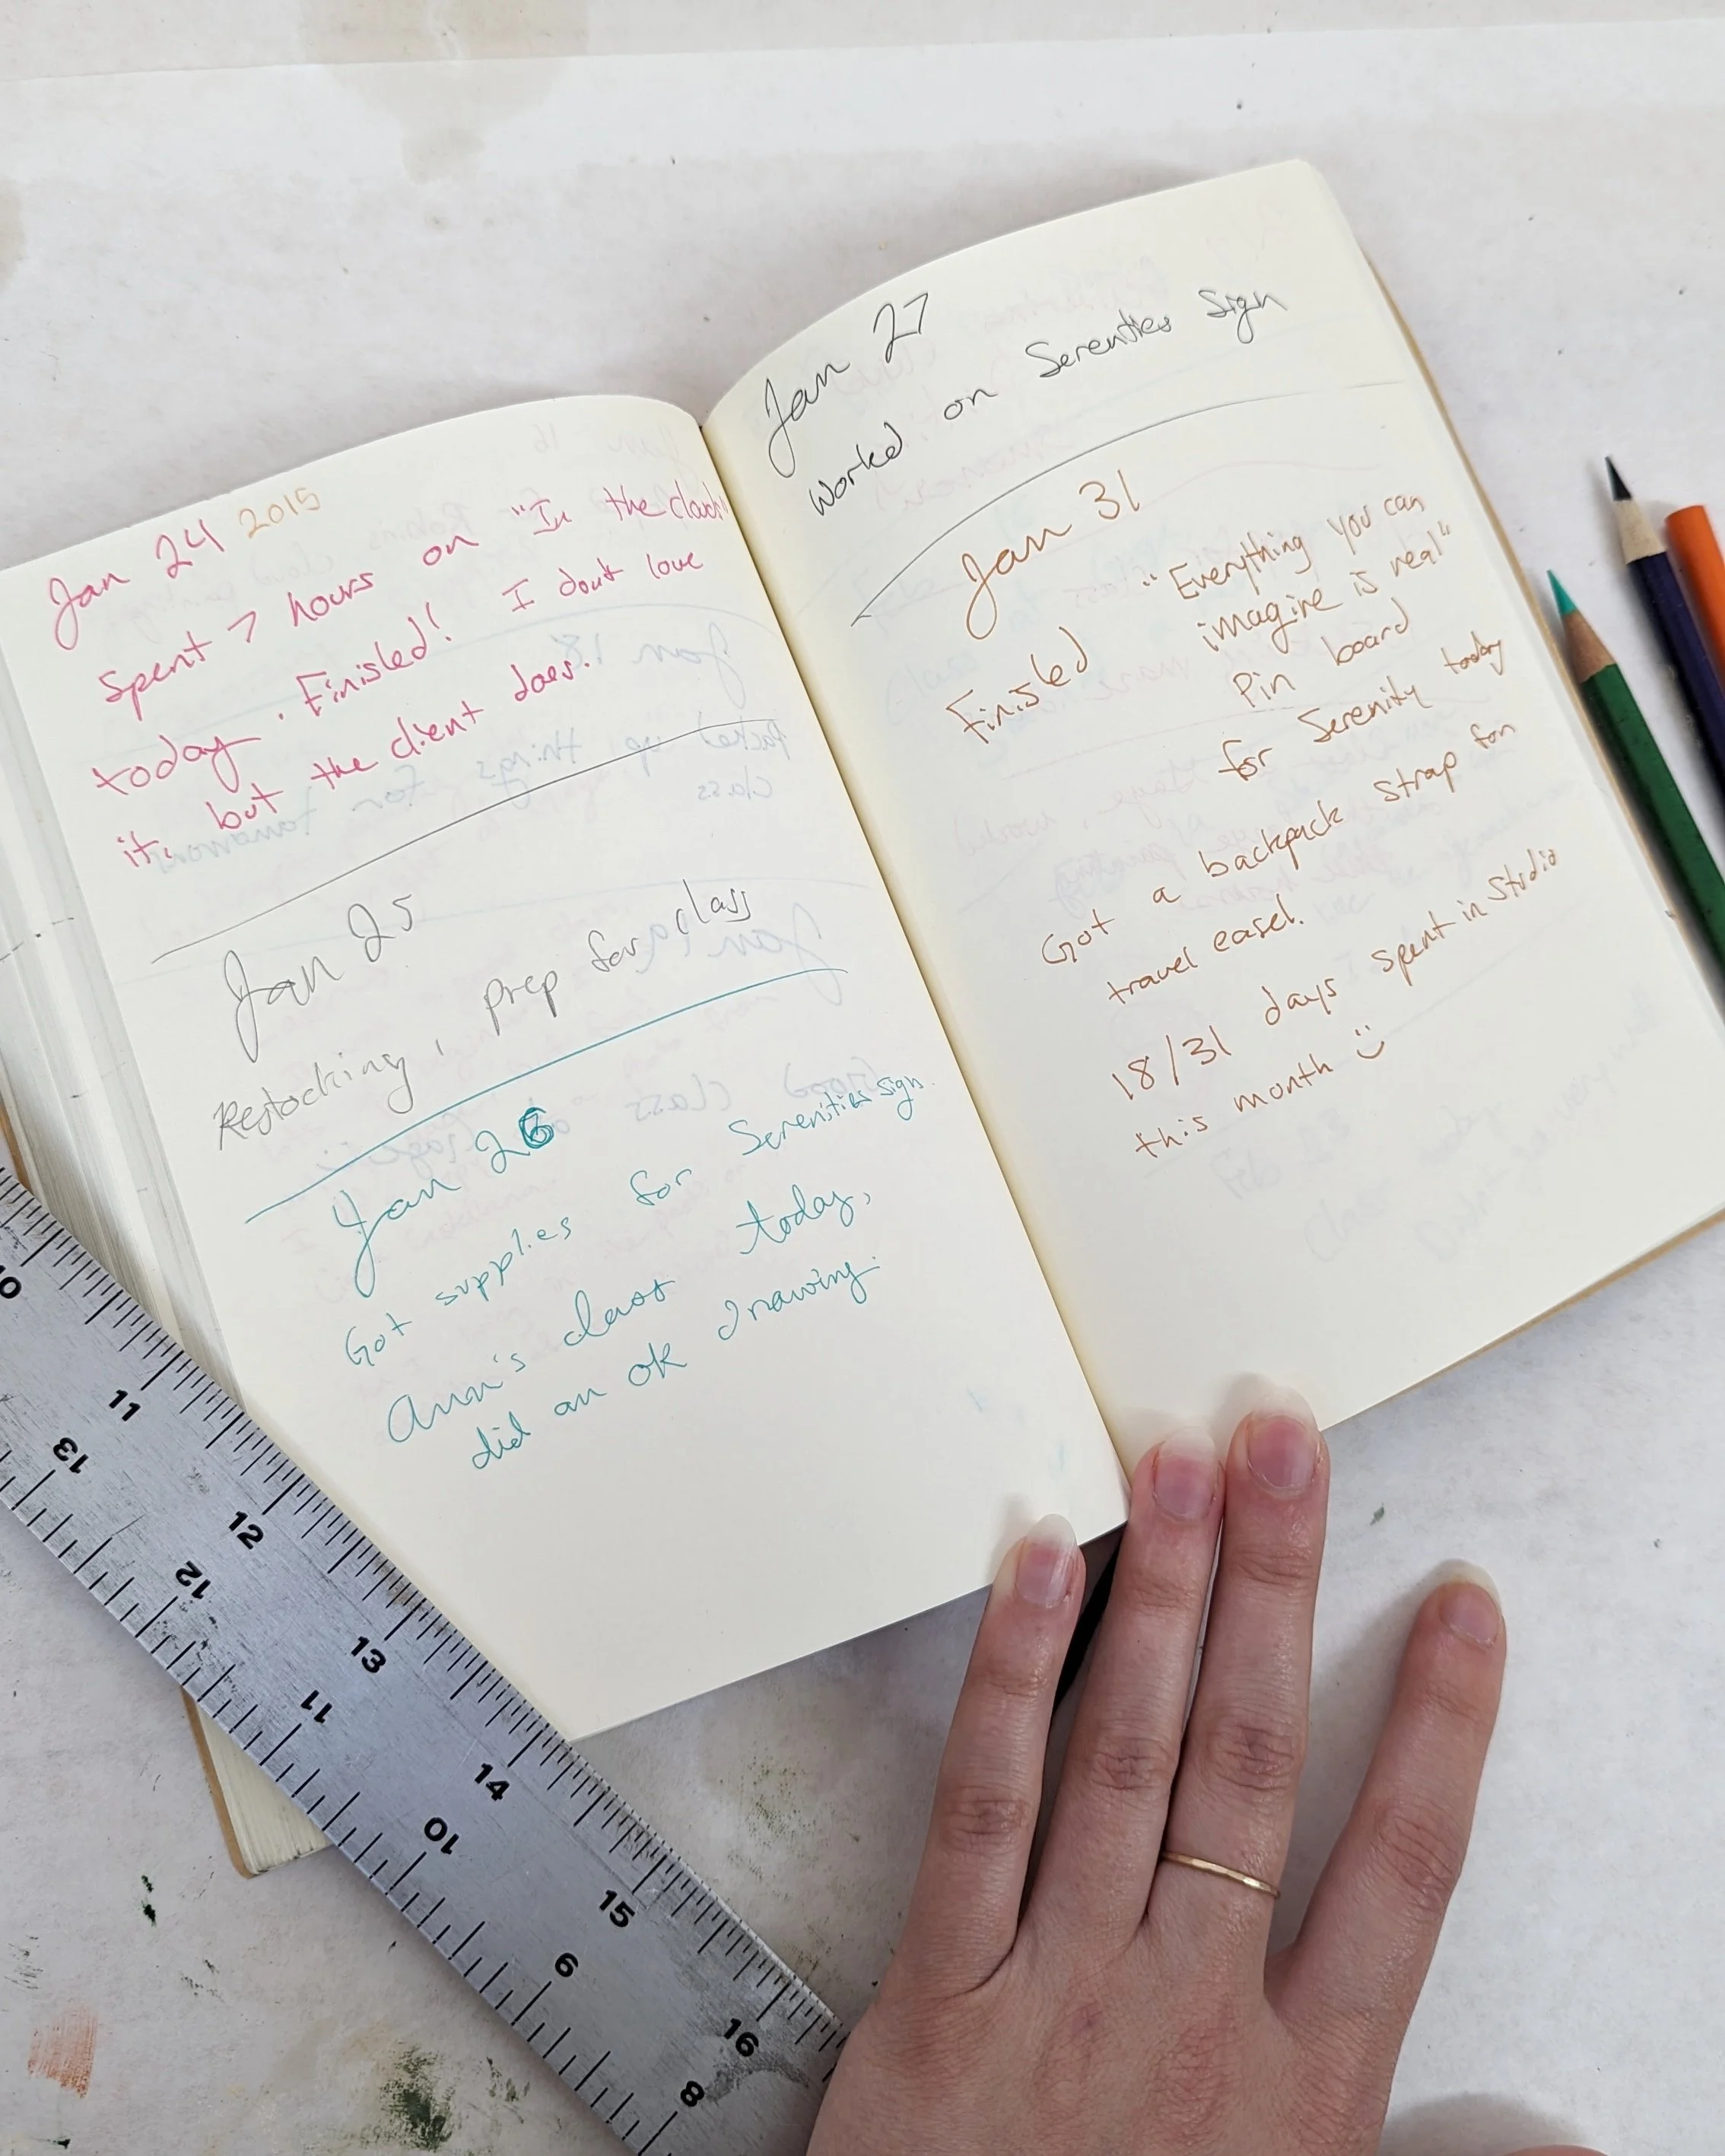 Jan 24 2015
Spent 7 hours on "In the clouds"
today. Finished! I dont love
it, but the client does.
Jan 25
Restocking, prep for class
Jan 26
Got supplies for Serenities sign.
Ann's class today,
did an ok drawing.
Jan 27
Worked on Serenties Sign
Jan 31
Finished "Everything you can
imagine is real"
Pin board
for Serenity today
Got a backpack strap for
travel easel.
18/31 days spent in Studio
this month :)
10
11
12
13
14
15
16
13
12
11
10
9
8